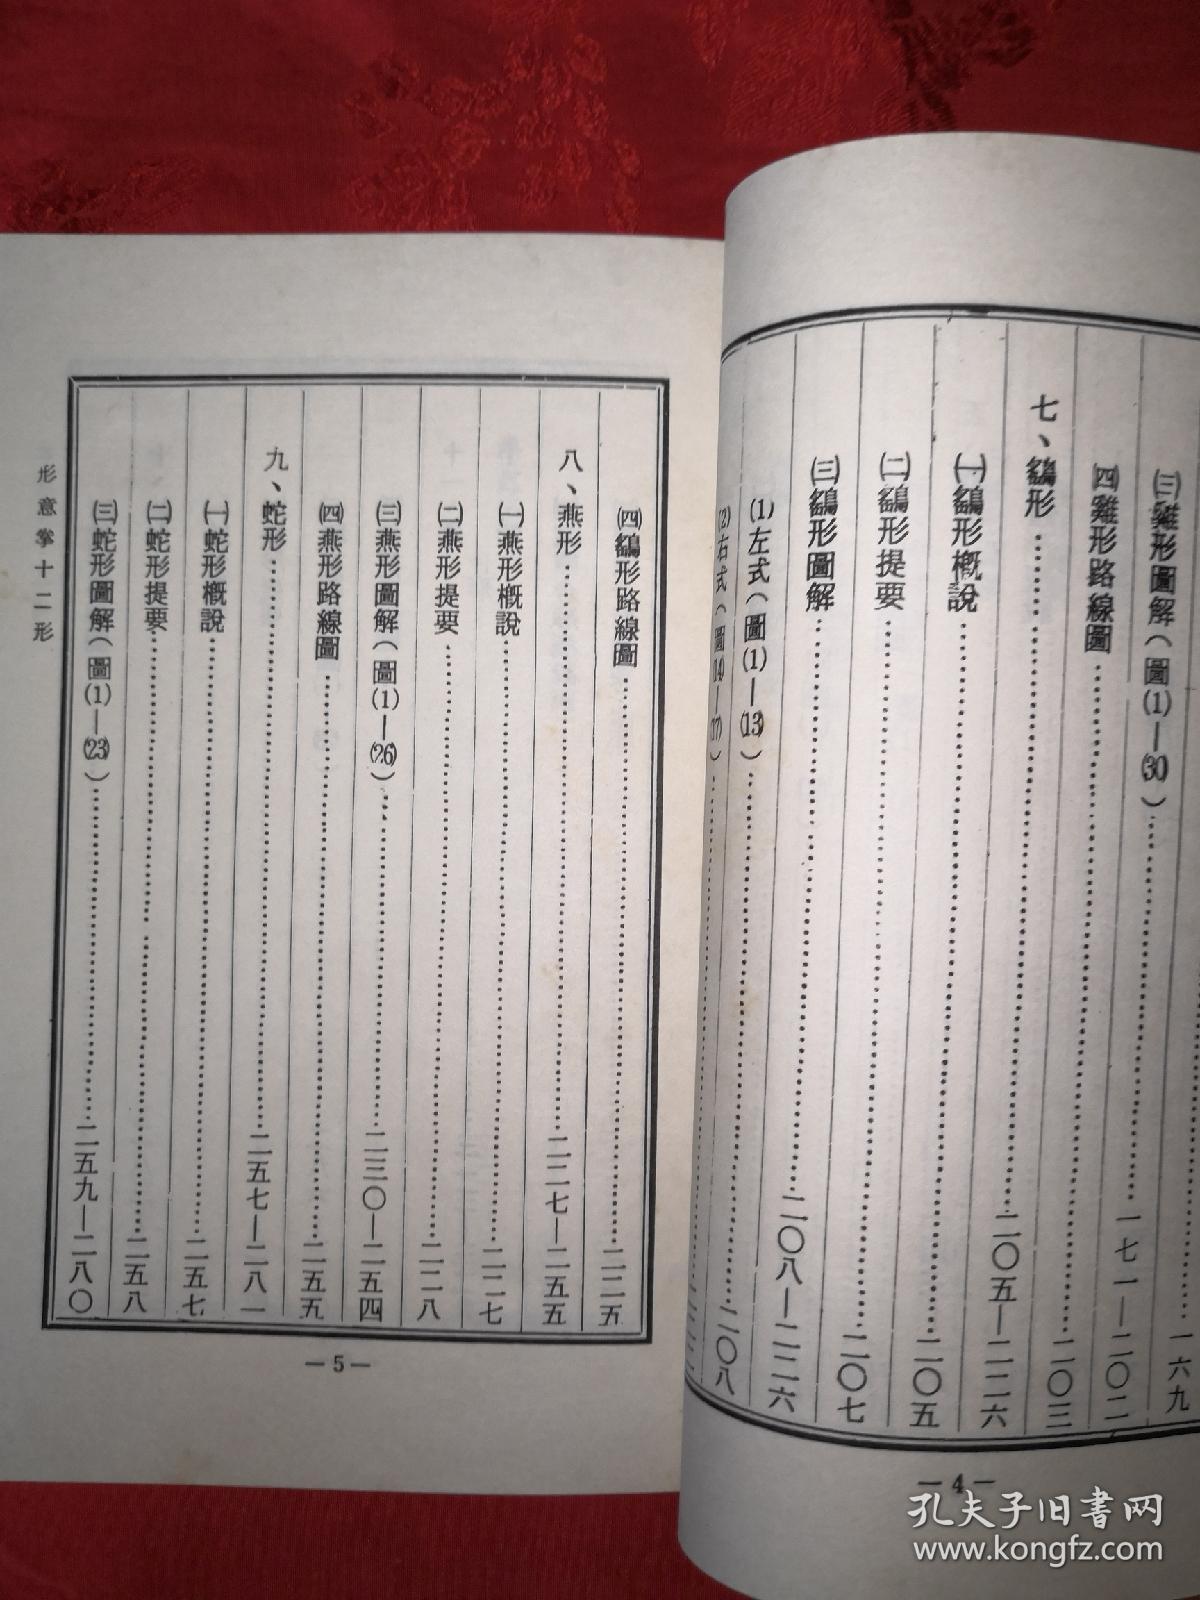 一六九
㈢雞形圖解（圖⑴—(30)）……一七一—二〇二
㈣雞形路線圖……二〇三
七、鷂形……二〇五—二二六
㈠鷂形概說……二〇五
㈡鷂形提要……二〇七
㈢鷂形圖解……二〇八—二二六
⑴左式（圖⑴—⒀）……二〇八
⑵右式（圖⒁—⒄）……
—4—
㈣鷂形路線圖……二二五
八、燕形……二二七—二五五
㈠燕形概說……二二七
㈡燕形提要……二二八
㈢燕形圖解（圖⑴—(26)）……二三〇—二五四
㈣燕形路線圖……二五五
九、蛇形……二五七—二八一
㈠蛇形概說……二五七
㈡蛇形提要……二五八
㈢蛇形圖解（圖⑴—(23)）……二五九—二八〇
形意拳十二形
—5—
孔夫子旧書网
www.kongfz.com